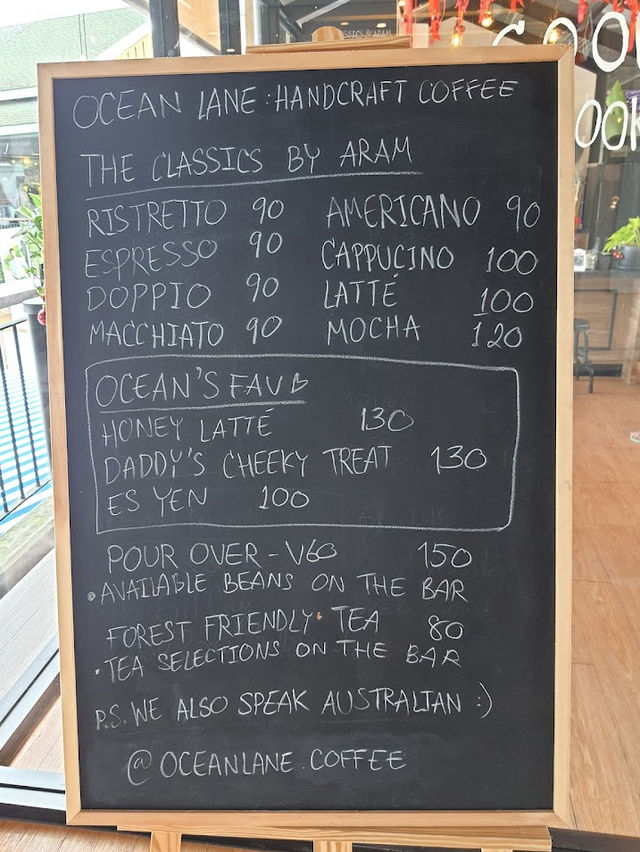 OCEAN LANE : HANDCRAFT COFFEE
THE CLASSICS BY ARAM
RISTRETTO 90 AMERICANO 90
ESPRESSO 90 CAPPUCINO 100
DOPPIO 90 LATTÉ 100
MACCHIATO 90 MOCHA 120
OCEAN'S FAV ♡
HONEY LATTÉ 130
DADDY'S CHEEKY TREAT 130
ES YEN 100
POUR OVER - V60 150
• AVAILABLE BEANS ON THE BAR
FOREST FRIENDLY TEA 80
• TEA SELECTIONS ON THE BAR
P.S. WE ALSO SPEAK AUSTRALIAN :)
@OCEANLANE.COFFEE